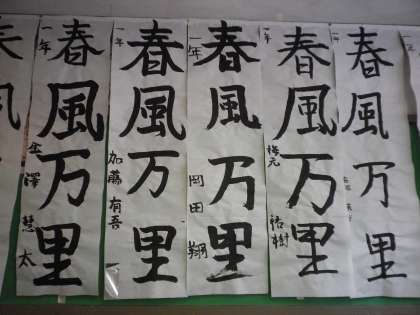 春風万里
一年
金澤慧太
春風万里
一年
加藤有吾
春風万里
一年
岡田翔
春風万里
一年
梅元裕樹
春風万里
一年